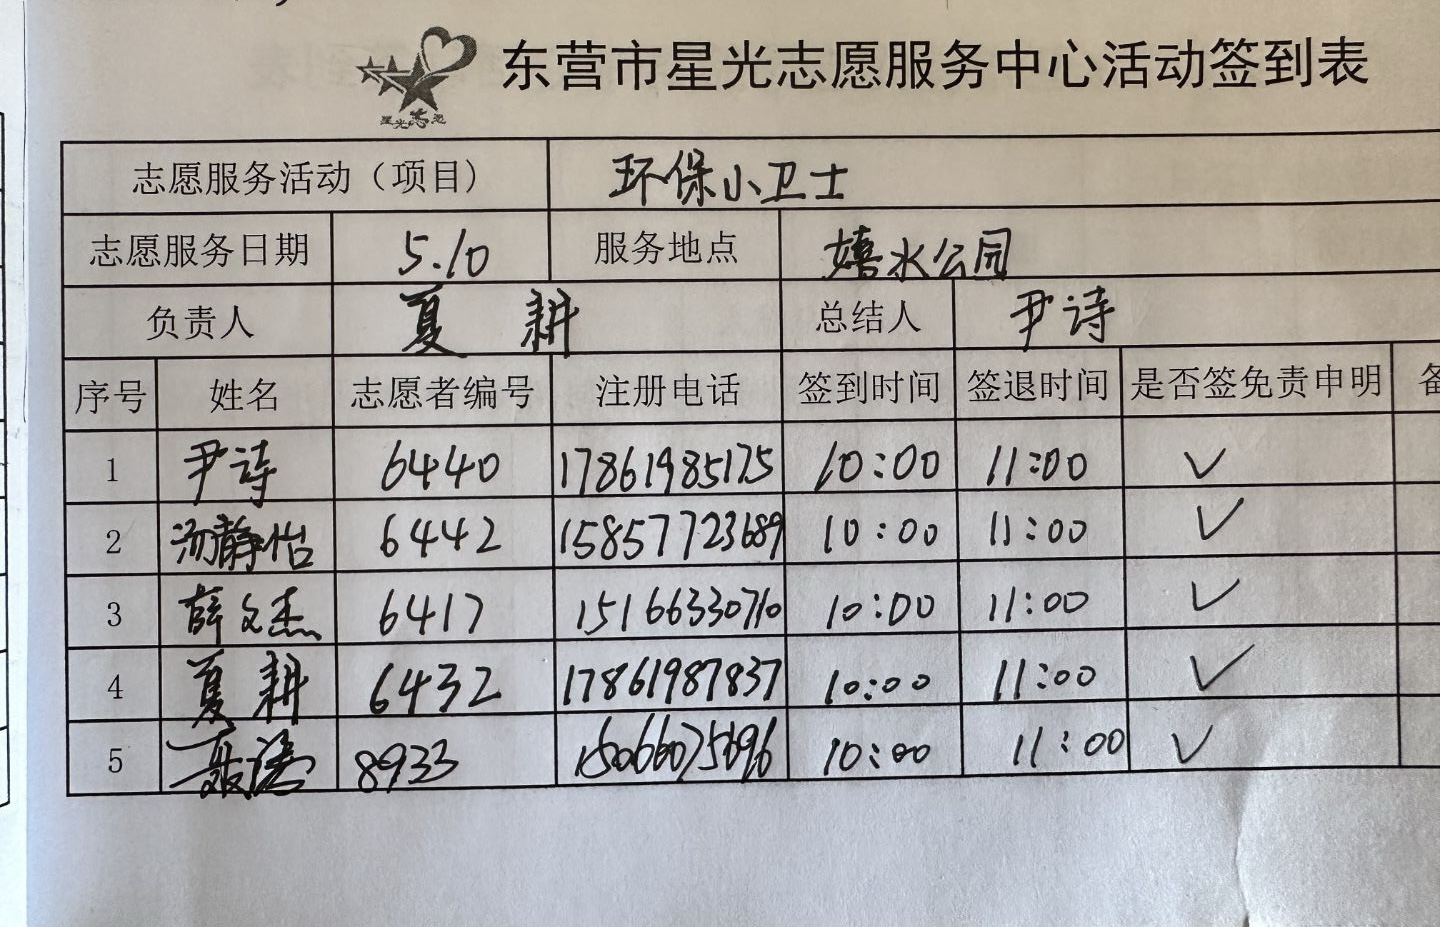 东营市星光志愿服务中心活动签到表
星光志愿
志愿服务活动（项目） 环保小卫士
志愿服务日期 5.10 服务地点 嬉水公园
负责人 夏耕 总结人 尹诗
序号 姓名 志愿者编号 注册电话 签到时间 签退时间 是否签免责申明
1 尹诗 6440 17861985175 10:00 11:00 ✓
2 汤静怡 6442 15857723689 10:00 11:00 ✓
3 薛文杰 6417 15166330710 10:00 11:00 ✓
4 夏耕 6432 17861987837 10:00 11:00 ✓
5 8933 15066075696 10:00 11:00 ✓